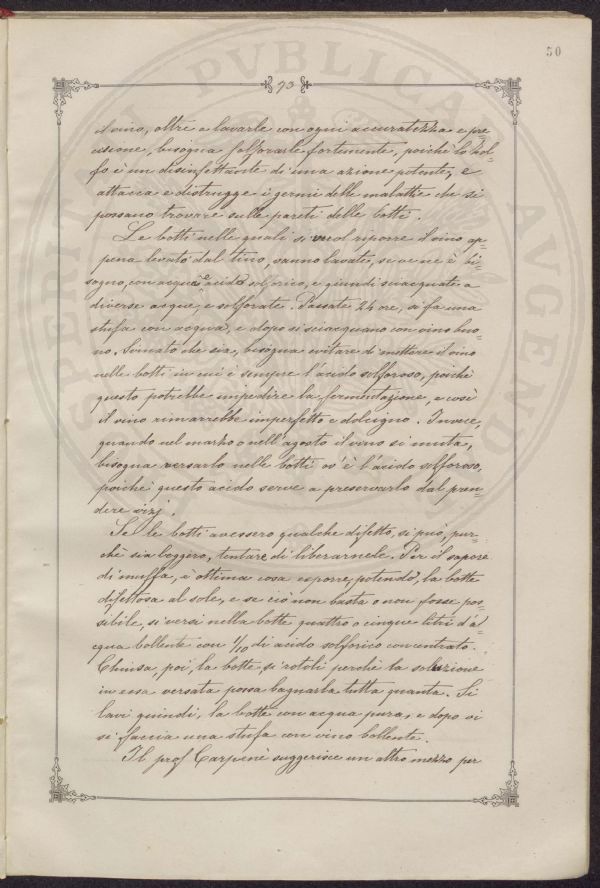 50
73
il vino, oltre a lavarle con ogni accuratezza e pre-
cisione, bisogna solforarle fortemente, poichè lo zol-
fo è un disinfettante di una azione potente, e
attacca e distrugge i germi delle malattie che si
possano trovare sulle pareti delle botti.
Le botti nelle quali si vuol riporre il vino ap-
pena levato dal tino, vanno lavate, se ve ne è bi-
sogno, con acqua e acido solforico, e quindi sciacquate a
diverse acque, e solforate. Passate 24 ore, si fa una
stufa con acqua, e dopo si sciacquano con vino buo-
no. Svinato che sia, bisogna evitare di mettere il vino
nelle botti in cui è sempre l'acido solforoso, poichè
questo potrebbe impedire la fermentazione, e così
il vino rimarrebbe imperfetto e dolcigno. Invece,
quando nel marzo o nell'agosto il vino si muta,
bisogna versarlo nelle botti ov'è l'acido solforoso,
poichè questo acido serve a preservarlo dal pren-
dere vizj.
Se le botti avessero qualche difetto, si può, pur-
chè sia leggero, tentare di liberarnele. Per il sapore
di muffa, è ottima cosa esporre, potendo, la botte
difettosa al sole, e se ciò non basta o non fosse pos-
sibile, si versi nella botte quattro o cinque litri d'ac-
qua bollente con 1/10 di acido solforico concentrato.
Chiusa, poi, la botte, si rotoli perchè la soluzione
in essa versata possa bagnarla tutta quanta. Si
lavi quindi, la botte con acqua pura, e dopo vi
si faccia una stufa con vino bollente.
Il prof. Carpenè suggerisce un altro mezzo per
SPEREM PVBLICAM AVGENDO